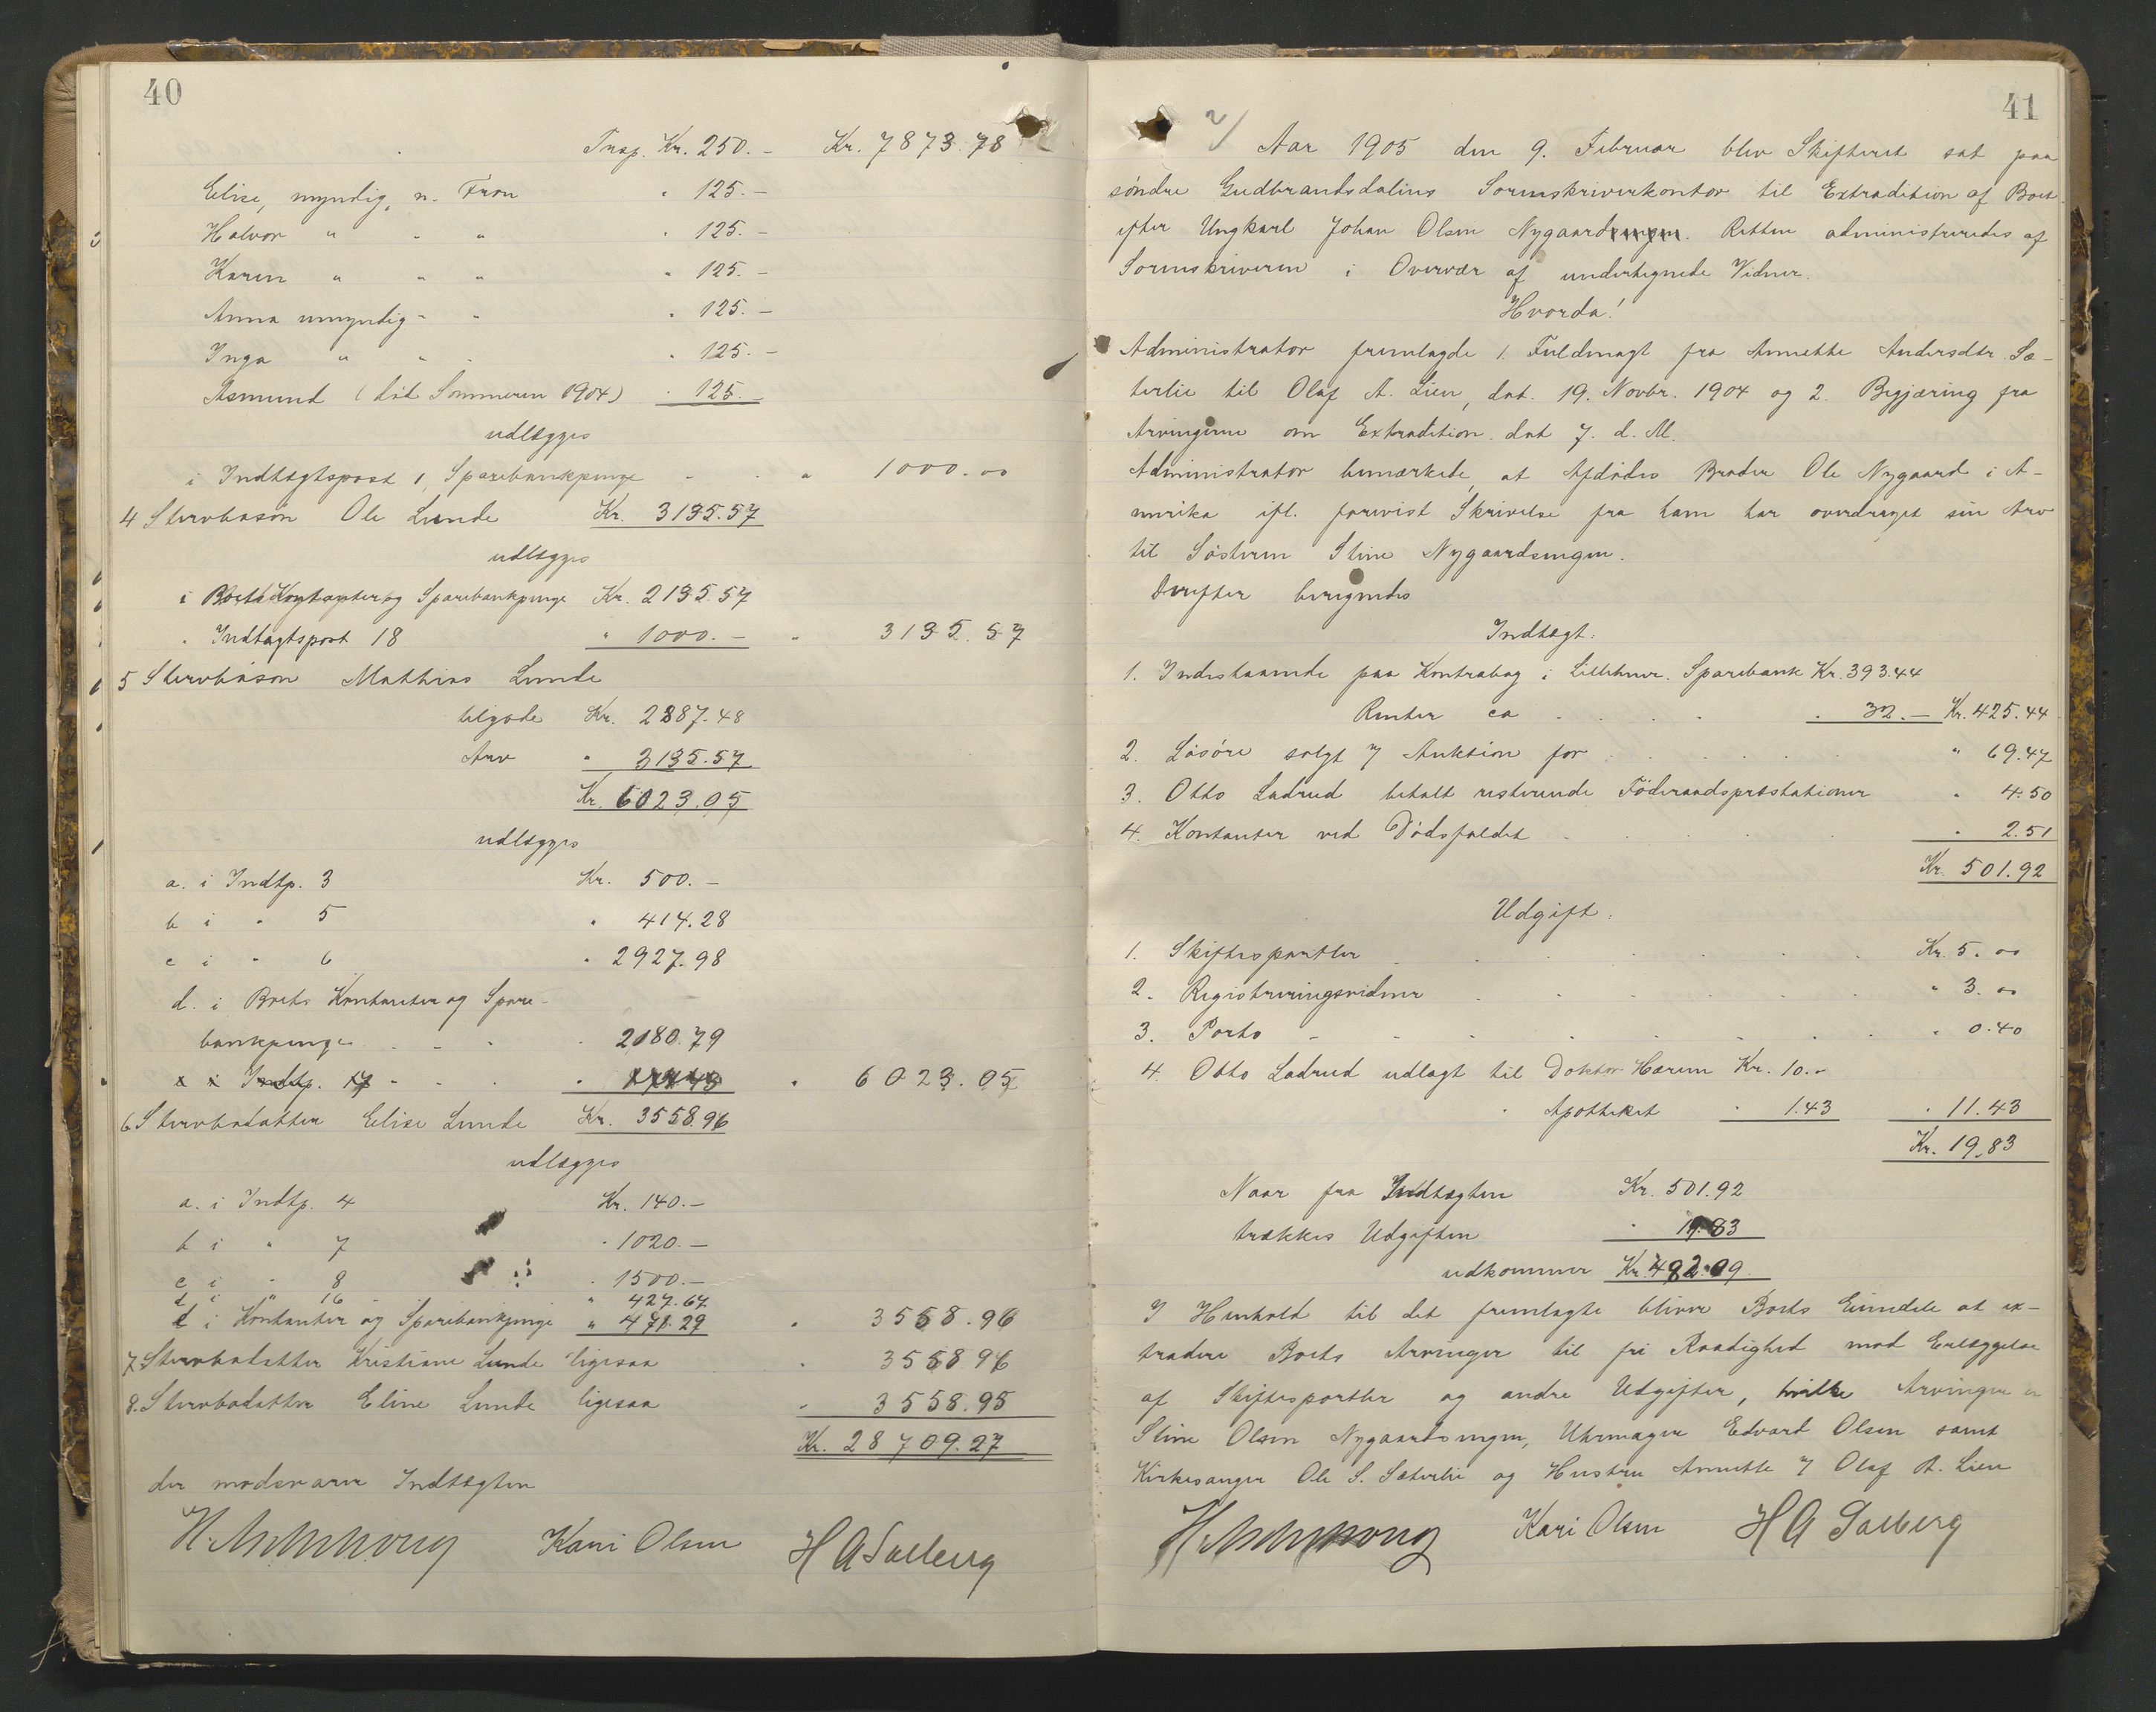 40
Trsp. Kr. 250.- Kr. 7873.78
Elise, myndig, n. Fron " 125.-
Halvor " " " 125.-
Karen " " " " 125.-
Anna umyndig " " " 125.-
Inga " " " " 125.-
Asmund (död Sommeren 1904) " 125.-
udlægges
i Indtægtspost 1, Sparebankpenge - - " 1000.00
4 Stervbosön Ole Lunde Kr. 3135.57
udlægges
i Boets Kontanter og Sparebankpenge Kr. 2135.57
" Indtægtspost 18 " 1000.- " 3135.57
5 Stervbosön Mathias Lunde
tilgode Kr. 2887.48
Arv " 3135.57
Kr. 6023.05
udlægges
a. i Indtp. 3 Kr. 500.-
b i " 5 " 414.28
c i " 6 " 2927.98
d. i Boets Kontanter og Spare-
bankpenge - - - " 2180.79
i Indtp. 17 - - - " " 6023.05
6 Stervbodatter Elise Lunde Kr. 3558.96
udlægges
a. i Indtp. 4 Kr. 140.-
b i " 7 " 1020.-
c i " 8 " 1500.-
d i " 16 - " 427.67
e i Kontanter og Sparebankpenge " 471.29 " 3558.96
7 Stervbodatter Kristiane Lunde ligesaa " 3558 96
8. Stervbodatter Eline Lunde ligesaa " 3558.95
Kr. 28709.27
der modsvarer Indtægten
Kari Olsen H A Solberg
41
2/ Aar 1905 den 9. Februar blev Skifteret sat paa
söndre Gudbrandsdalens Sorenskriverkontor til Extradition af Boet
efter Ungkarl Johan Olsen Nygaardsengen. Retten administreredes af
Sorenskriveren i Overvær af undertegnede Vidner.
Hvorda!
Administrator fremlagde 1. Fuldmagt fra Annette Andersdtr. Sæ-
terlie til Olaf A. Lien, dat. 19. Novbr. 1904 og 2. Begjæring fra
Arvingerne om Extradition dat 7. d. M.
Administrator bemærkede, at Afdødes Broder Ole Nygaard i A-
merika ifl. forevist Skrivelse fra ham har overdraget sin Arv
til Søsteren Stine Nygaardsengen.
Derefter beregnedes
Indtægt:
1. Indestaaende paa Kontrabog i Lillehmr. Sparebank Kr. 393.44
Renter ca - - - - " 32.- Kr. 425.44
2. Løsøre solgt v Auktion for - - - - " 69.47
3. Otto Ladrud betalt resterende Föderaadsprestationer " 4.50
4. Kontanter ved Dödsfaldet - - - - " 2.51
Kr. 501.92
Udgift:
1. Skiftesportler - - - - - Kr. 5.00
2. Registreringsvidner - - - - - " 3.00
3. Porto - - - - - - " 0.40
4. Otto Ladrud udlagt til Doktor Hærem Kr. 10.-
" Apotheket " 1.43 " 11.43
Kr. 19.83
Naar fra Indtægten Kr. 501.92
trækkes Udgiften " 19.83
udkommer Kr. 482.09
I Henhold til det fremlagte bliver Boets Eiendele at ex-
tradere Boets Arvinger til fri Raadighed mod Erlæggelse
af Skiftesportler og andre Udgifter, hvilke Arvinger er
Stine Olsen Nygaardsengen, Uhrmager Edvard Olsen samt
Kirkesanger Ole S. Sæterlie og Hustru Annette v Olaf A. Lien
Kari Olsen H A Solberg